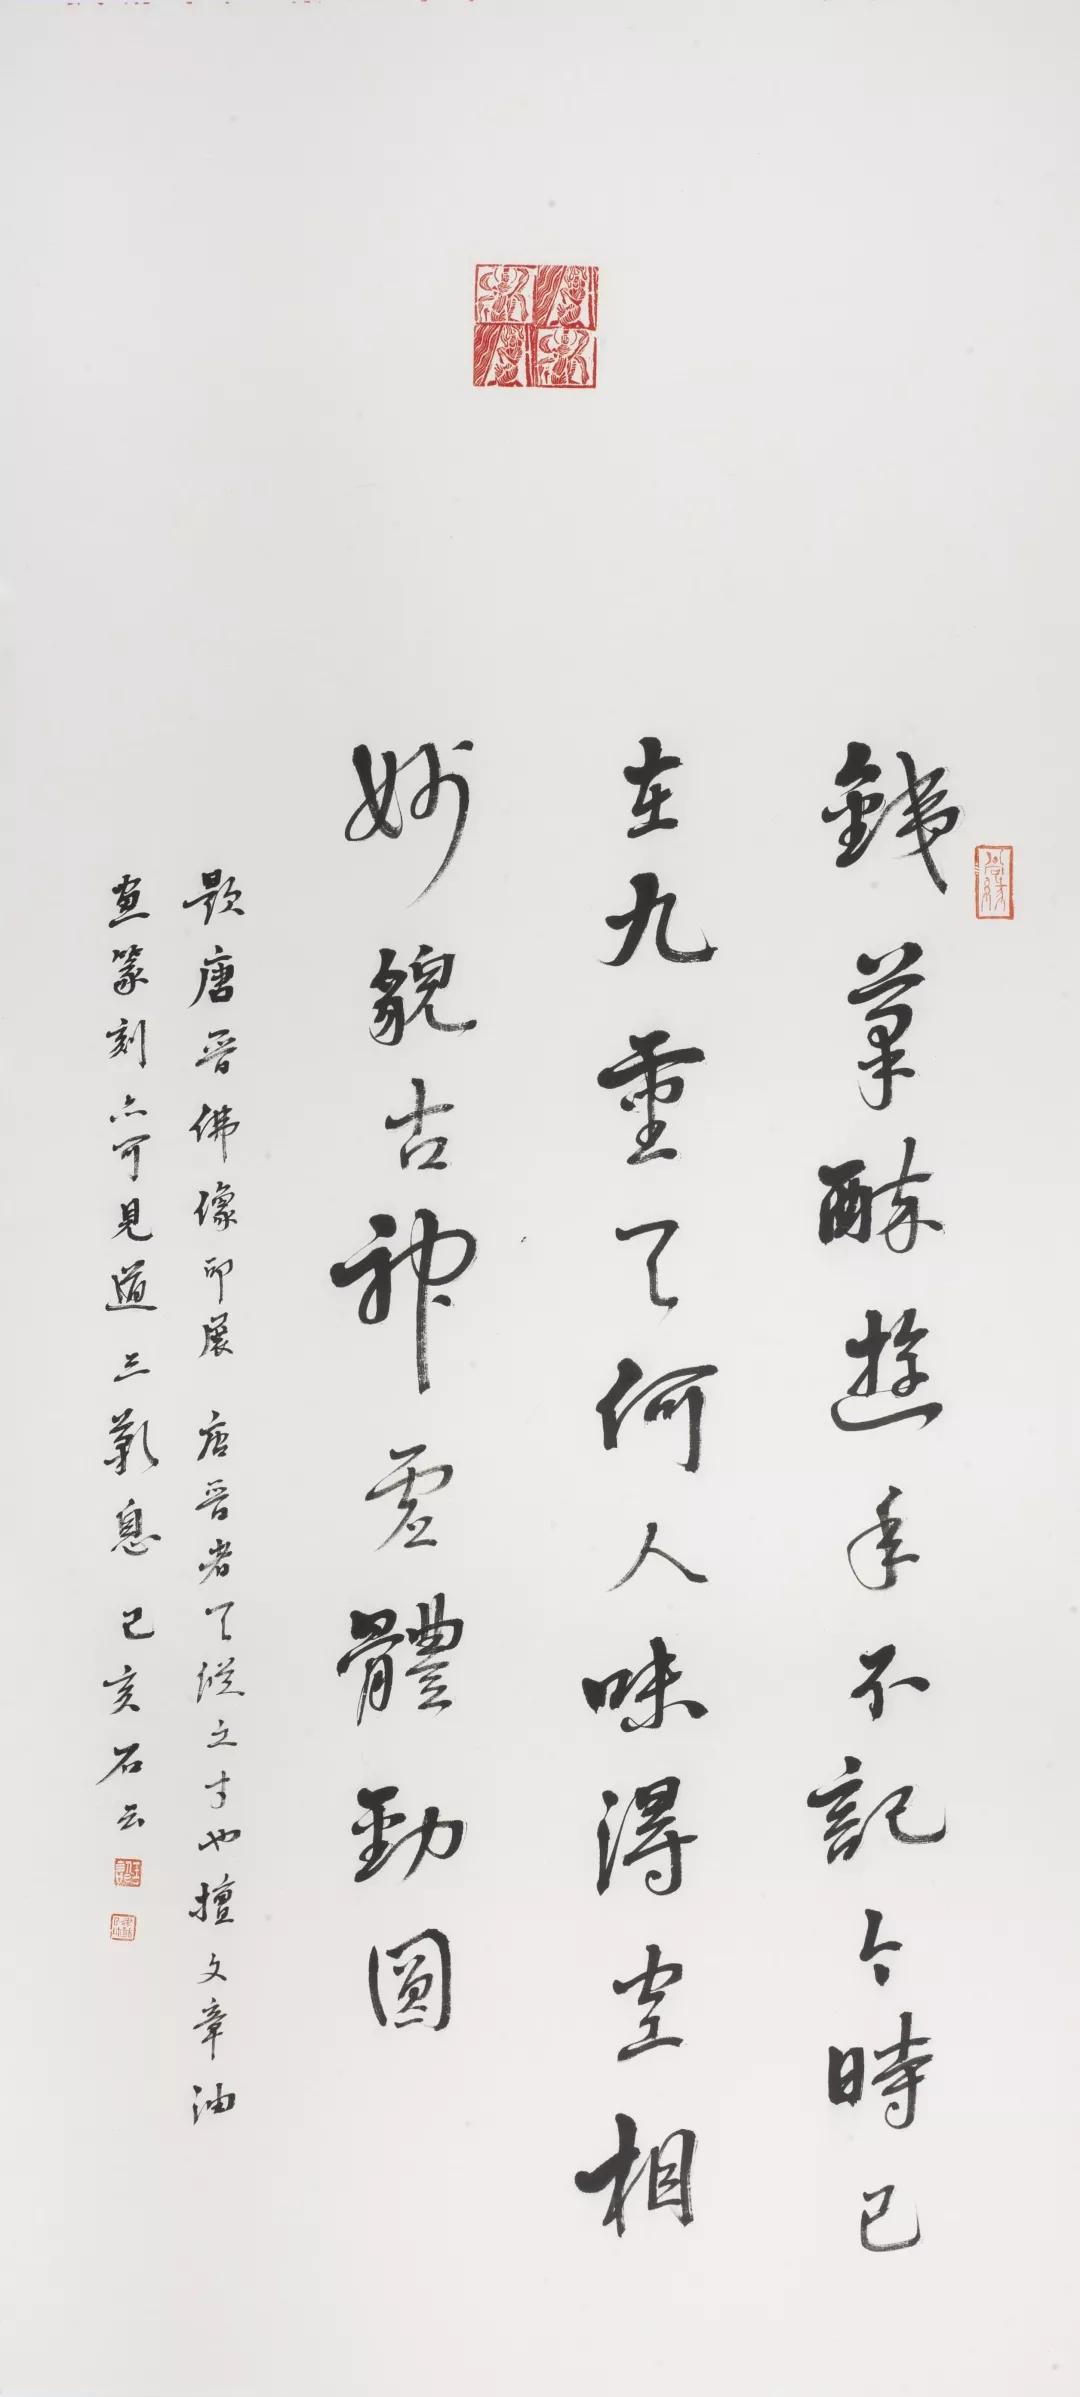 鐵筆醉遊年不記今時已
在九重天何人味得空相
妙貌古神虛體勁圓
題唐晉佛像印展 唐晉者天縱之才也擅文章油
畫篆刻亦可見道三歎息 己亥石云